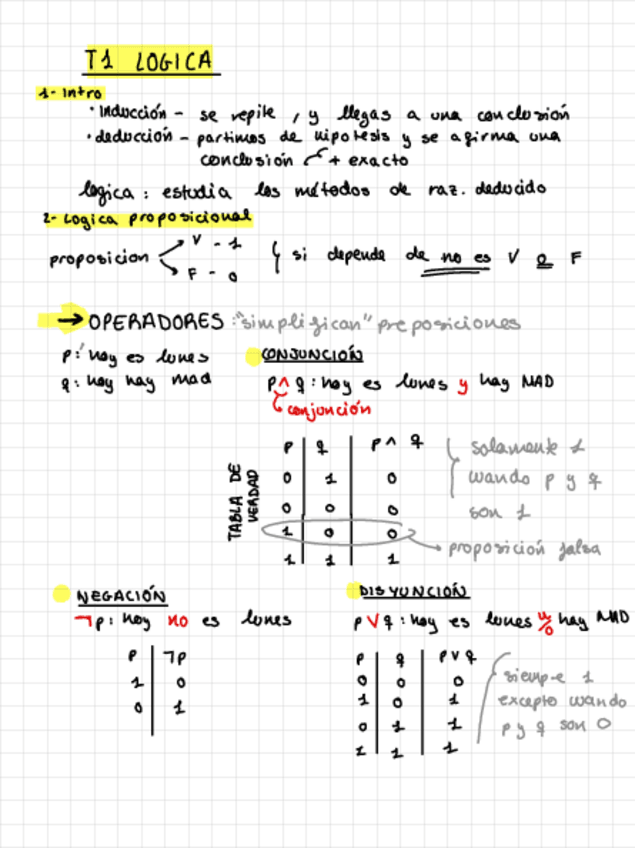 T1 LOGICA
1- Intro
· Inducción - se repite, y llegas a una conclusión
· deducción - partimos de hipotesis y se afirma una
conclusión + exacto
logica: estudia los métodos de raz. deducido
2- Logica proposicional
proposicion V - 1
F - 0
si depende de no es V o F
→ OPERADORES: "simplifican" preposiciones
p: hoy es lunes
q: hoy hay mad
CONJUNCIÓN
p ∧ q: hoy es lunes y hay MAD
conjunción
TABLA DE VERDAD
p q p ∧ q
0 1 0
0 0 0
1 0 0
1 1 1
solamente 1
cuando p y q
son 1
proposición falsa
NEGACIÓN
¬p: hoy no es lunes
p ¬p
1 0
0 1
DISYUNCIÓN
p ∨ q: hoy es lunes u/o hay MAD
p q p ∨ q
0 0 0
1 0 1
0 1 1
1 1 1
siempre 1
excepto cuando
p y q son 0